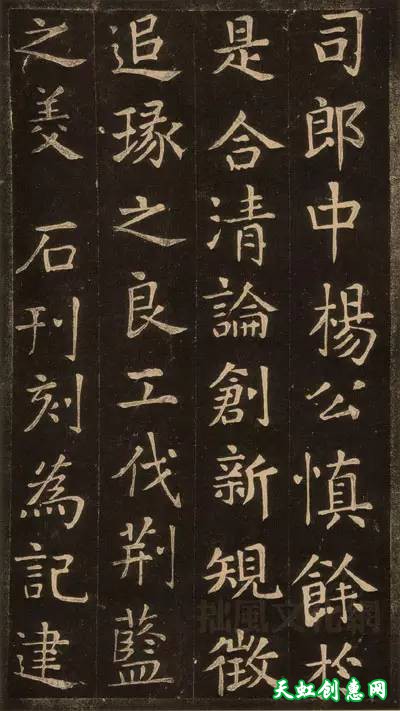 司郎中楊公慎餘於
是合清論創新規徵
追琢之良工伐荆藍
之美 石刊刻為記建
拙風文化網
天虹创惠网